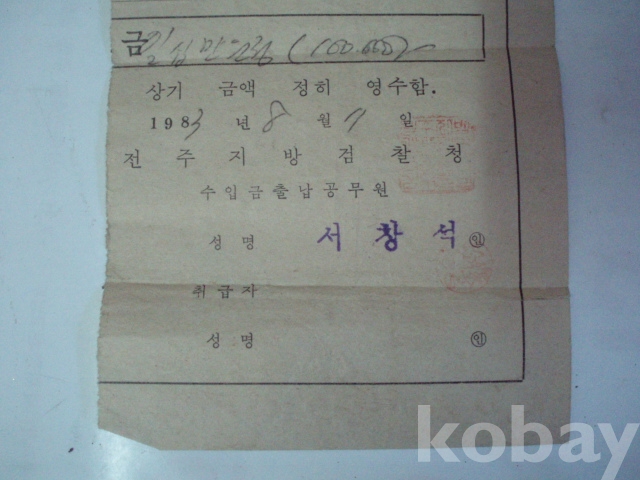 금 일십만원 (100,000)
상기 금액 정히 영수함.
1983년 8월 9일
전주지방검찰청
수입금출납공무원
성명 서창석 ㊞
취급자
성명 ㊞
kobay